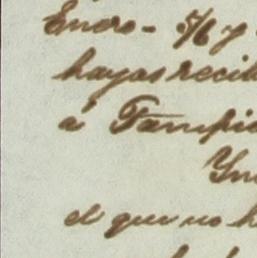 Enero - 5/6 y
hayas recib
á Tampic
el que no h